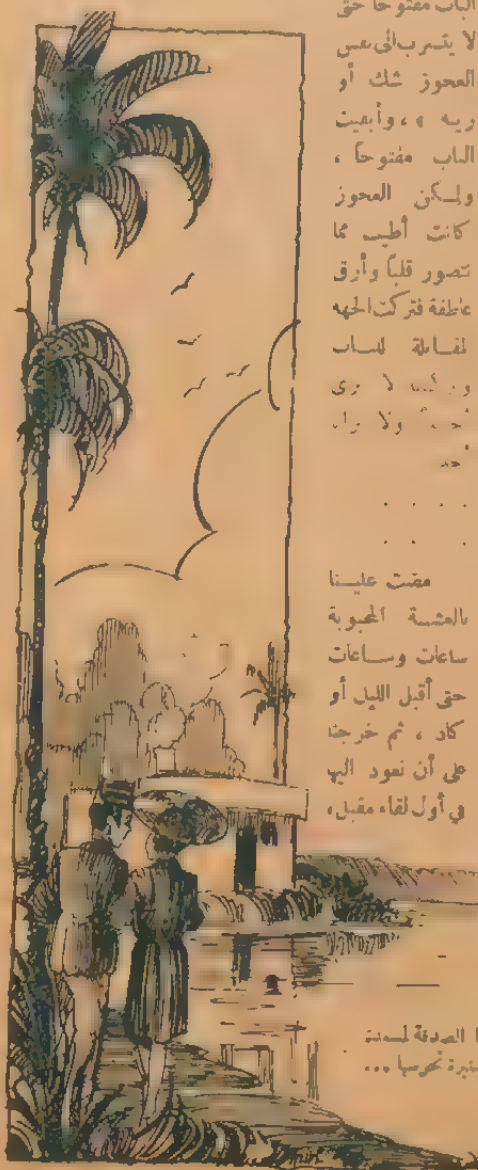 الباب مفتوحا حتى
لا يتسرب الى نفس
العجوز شك أو
ريبه » ، وأبقيت
الباب مفتوحاً ،
ولكن العجوز
كانت أطيب مما
نتصور قلباً وأرق
عاطفة فتركت الجهه
لمقابلة للباب
لا ترى
ولا يراه
أحد
. . . .
. .
مضت علينا
بالعشة المحبوبة
ساعات وساعات
حتى أقبل الليل أو
كاد ، ثم خرجنا
على أن نعود اليها
في أول لقاء مقبل ،
الصدفة
...